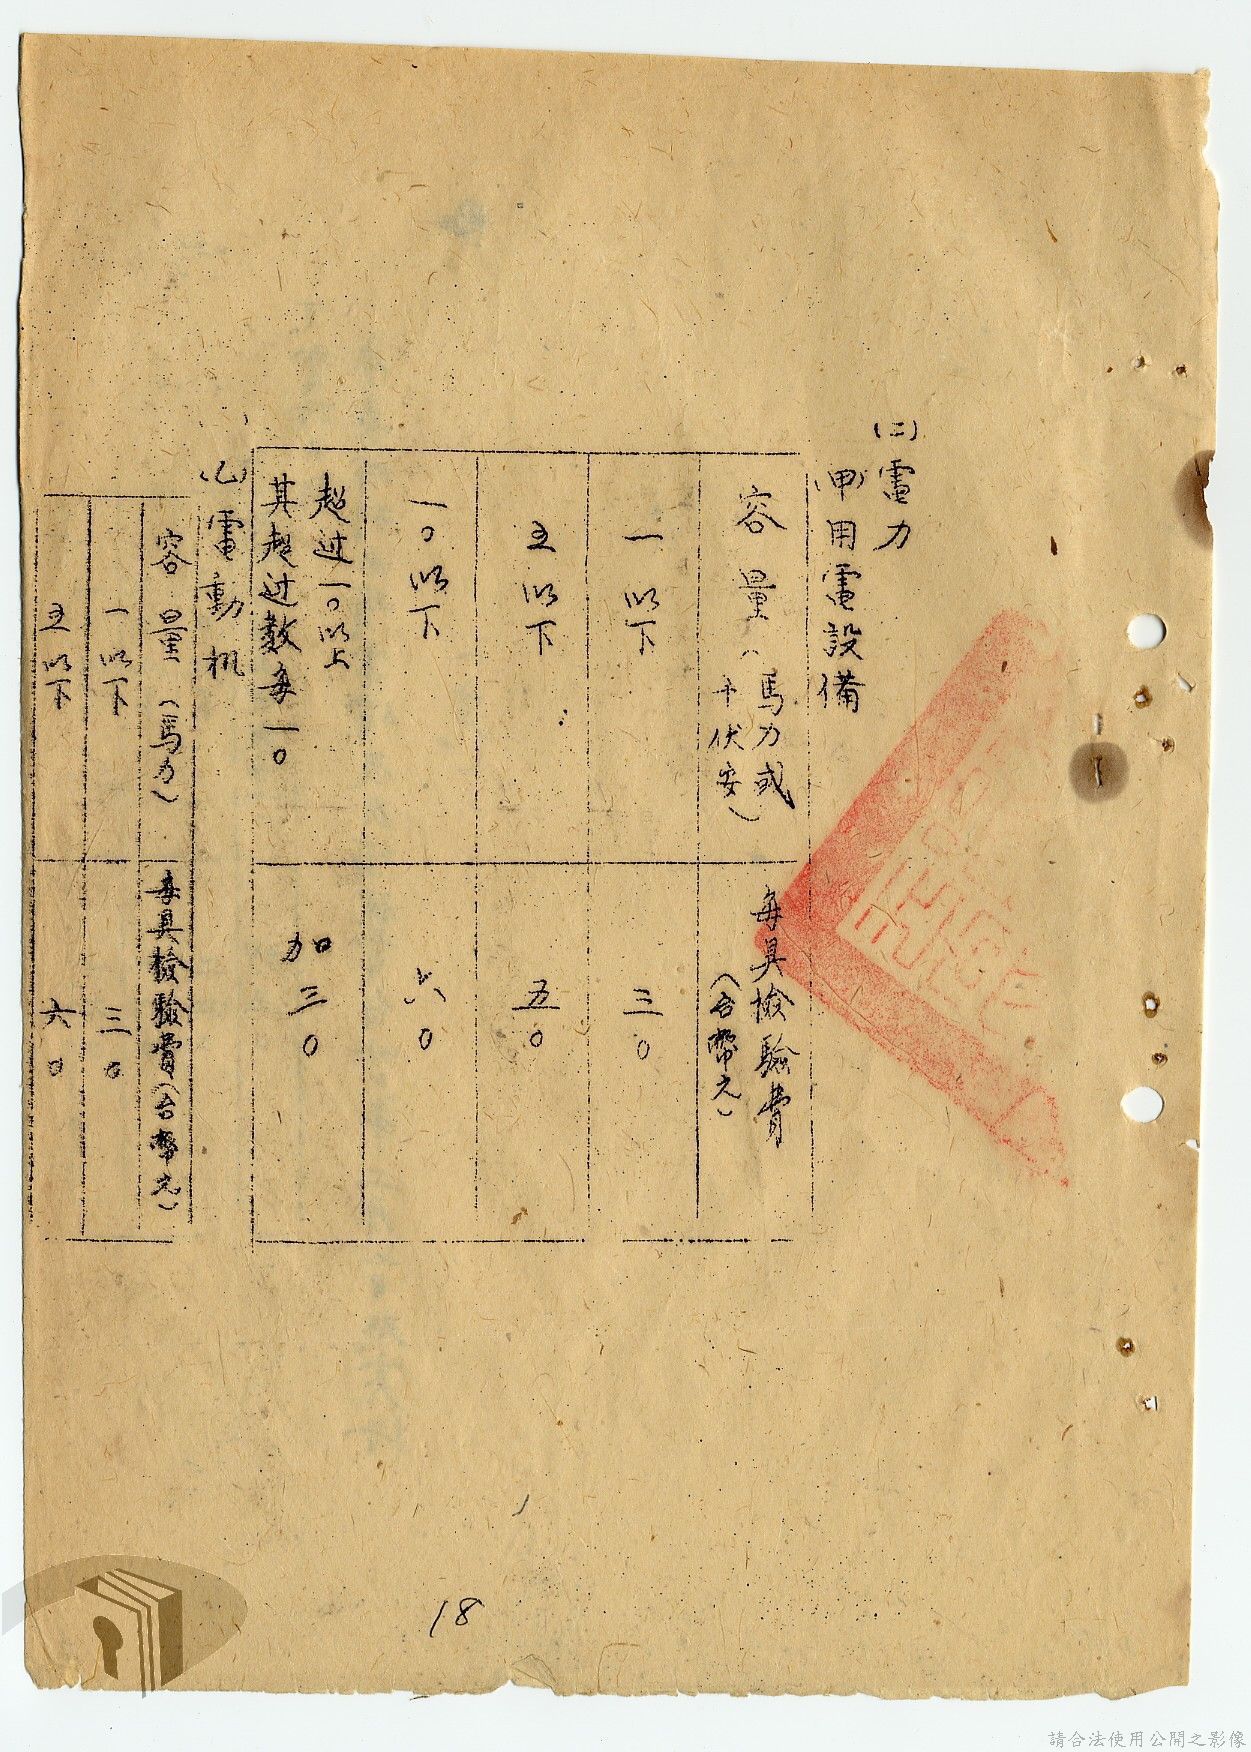 (二)電力
(甲)用電設備
容量(馬力或千伏安)
每具檢驗費(台幣元)
一以下
三〇
五以下
五〇
一〇以下
六〇
超过一〇以上
其超过数每一〇
加三〇
(乙)電動机
容量(馬力)
每具檢驗費(台幣元)
一以下
三〇
五以下
六〇
18
請合法使用公開之影像